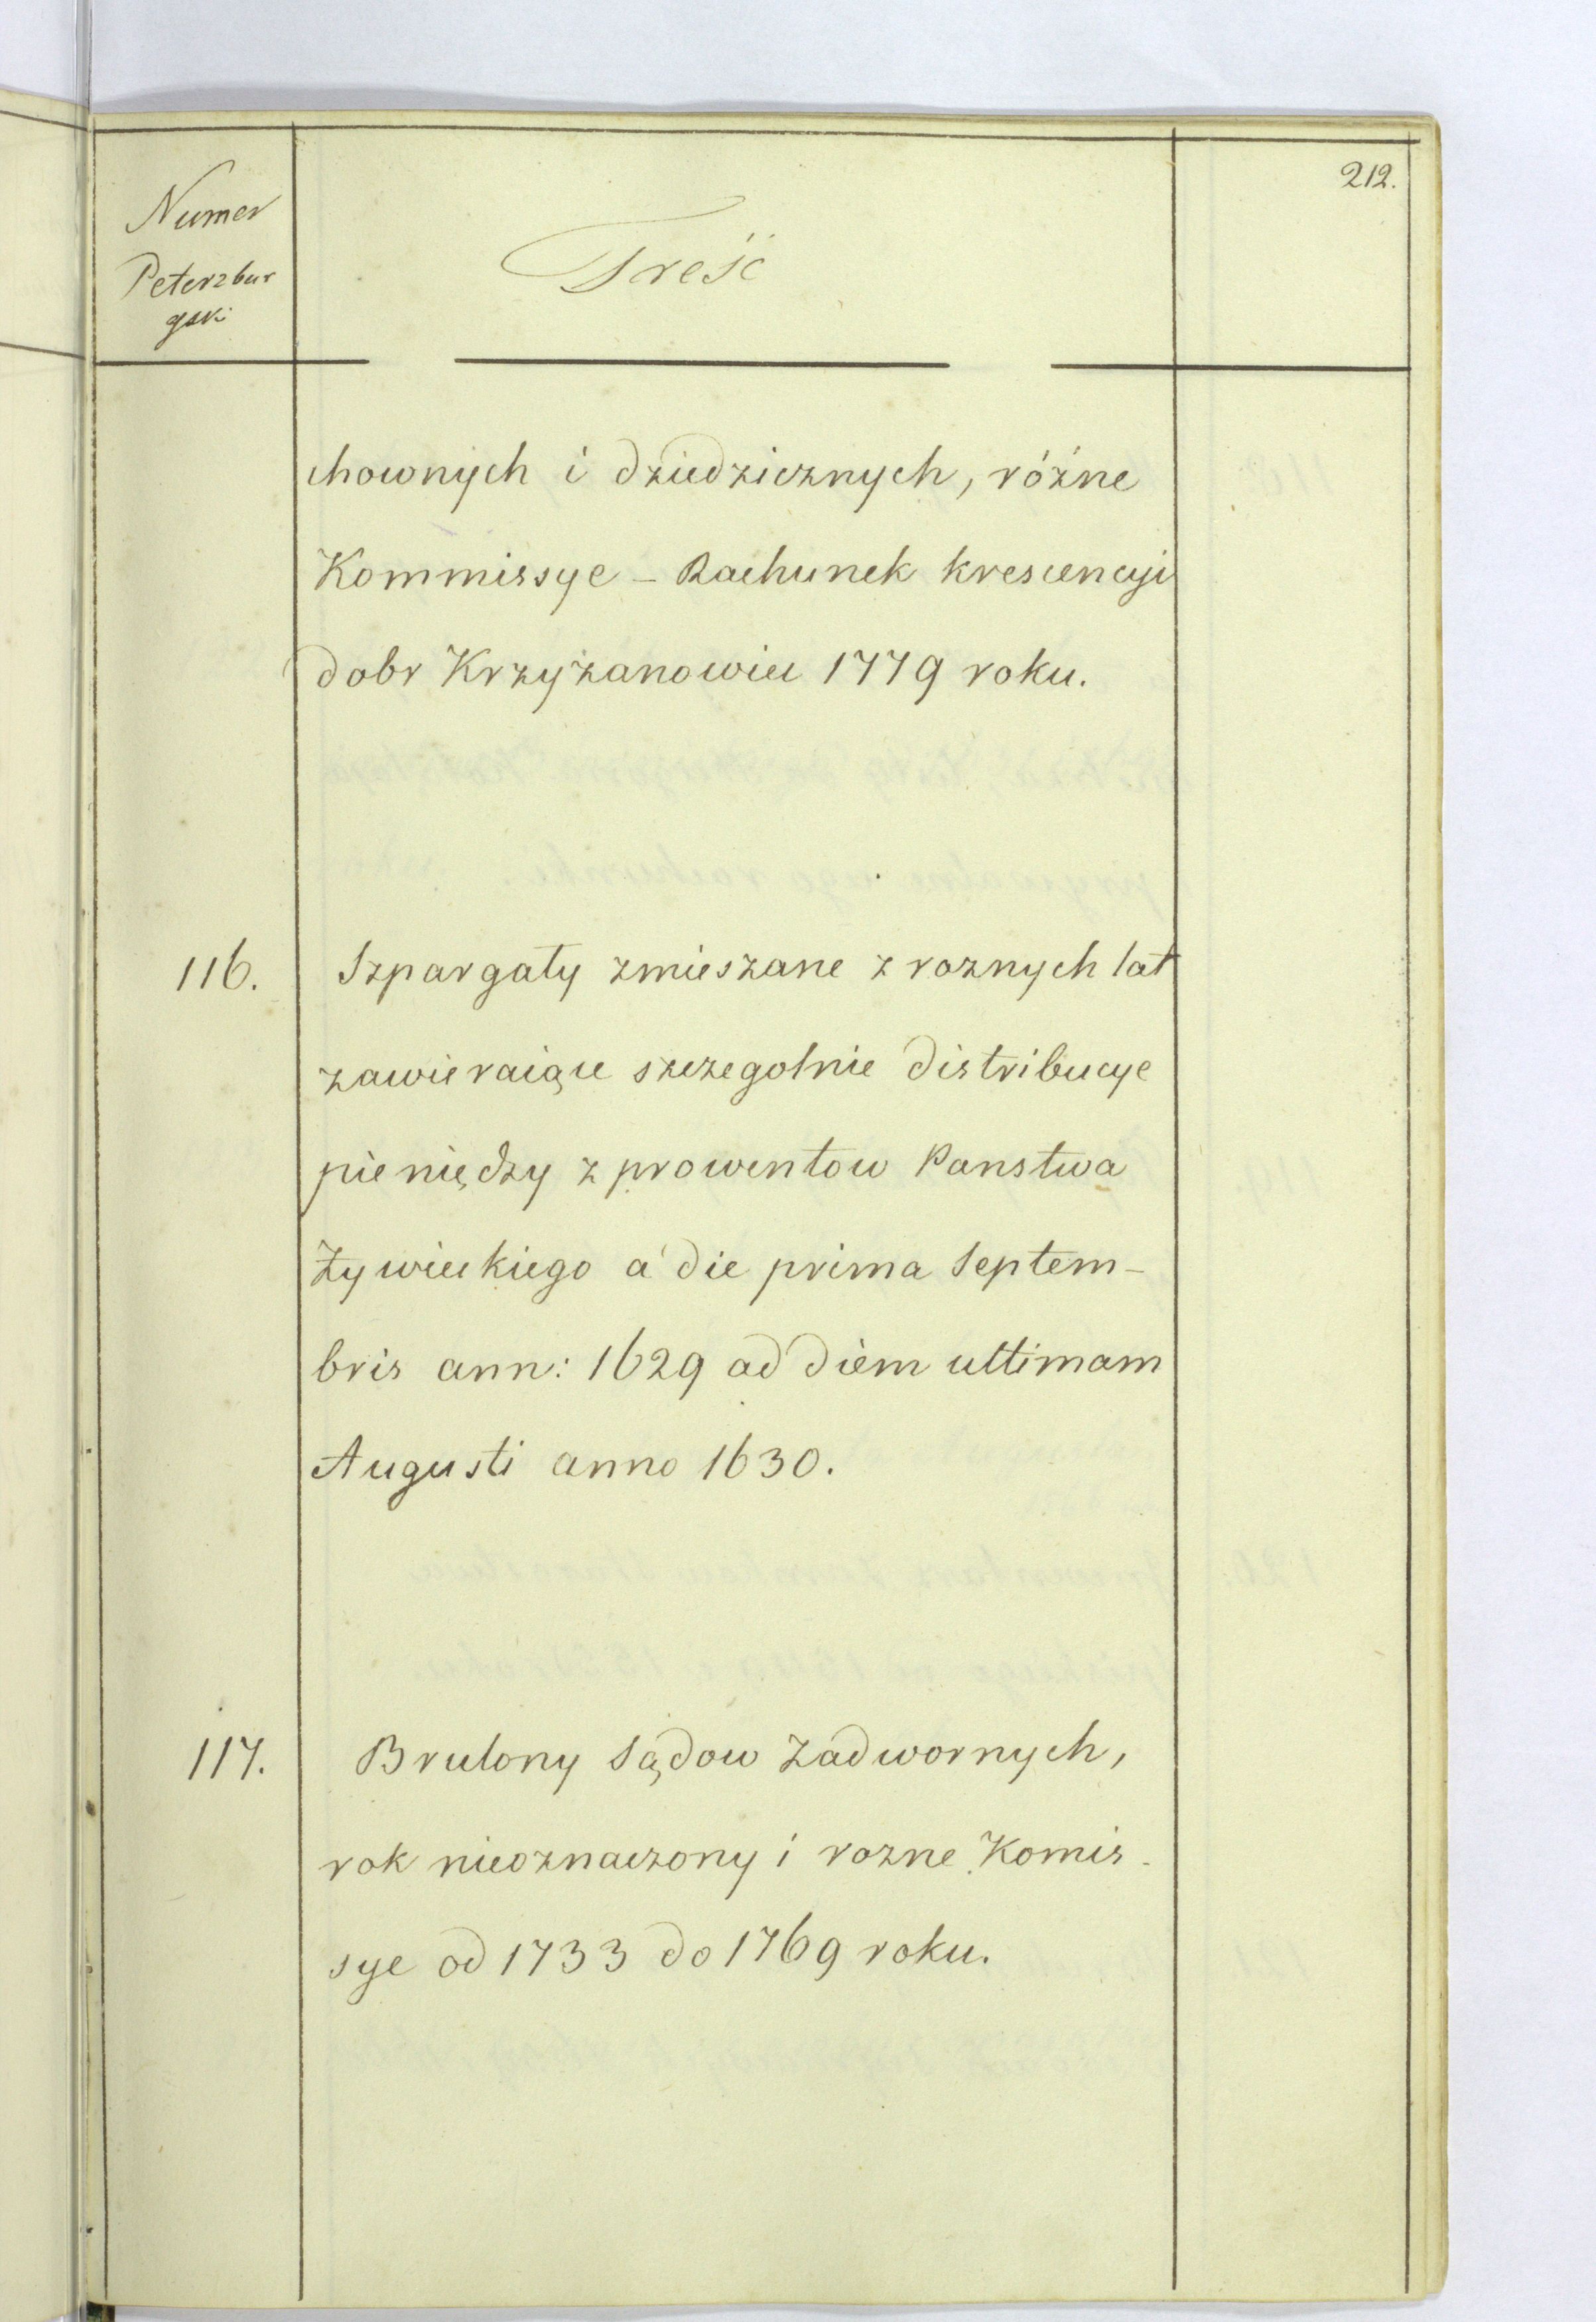 212.
Numer
Peterzbur
gski
Treść
chownych i dziedzicznych, różne
Kommissye – Rachunek krescencyi
dobr Krzyżanowice 1779 roku.
116. Szpargały zmieszane z roznych lat
zawieraiące szczegolnie distribucye
pieniędzy z prowentow Panstwa
Żywieckiego a die prima Septem-
bris ann: 1629 ad diem ultimam
Augusti anno 1630.
117. Brulony Sądow Zadwornych,
rok nieoznaczony i rozne Komis-
sye od 1733 do 1769 roku.